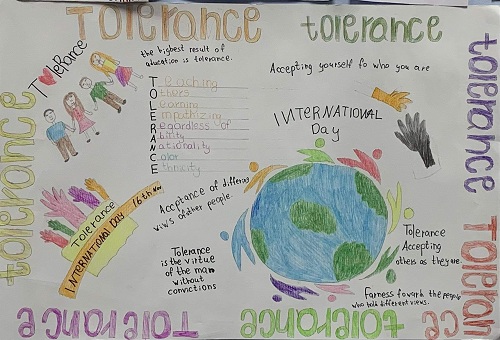 Tolerance
tolerance
Tolerance
the highest result of
education is tolerance.
Accepting yourself fo who you are
Teaching
Others
Learning
Empathizing
Regardless of
Ability
Nationality
Color
Ethnicity
INTERNATIONAL
Day
tolerance
tolerance
Tolerance
INTERNATIONAL DAY 16th Nov
Acceptance of differing
views of other people.
Tolerance
is the virtue
of the man
without
convictions
Tolerance
Accepting
others as they are
Farness fowarh the people
who hold different views.
Tolerance
tolerance
Tolerance